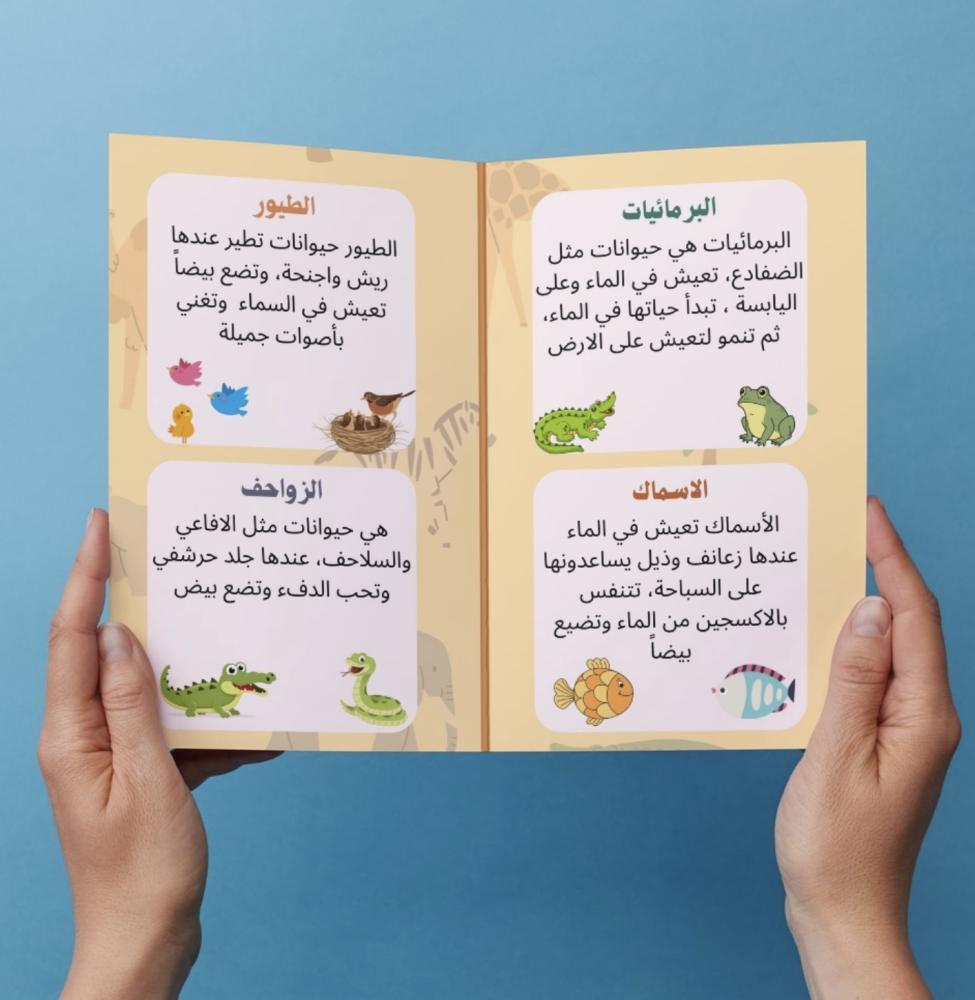 البرمائيات
البرمائيات هي حيوانات مثل
الضفادع، تعيش في الماء وعلى
اليابسة ، تبدأ حياتها في الماء،
ثم تنمو لتعيش على الارض
الاسماك
الأسماك تعيش في الماء
عندها زعانف وذيل يساعدونها
على السباحة، تتنفس
بالاكسجين من الماء وتضيع
بيضاً
الطيور
الطيور حيوانات تطير عندها
ريش واجنحة، وتضع بيضاً
تعيش في السماء وتغني
بأصوات جميلة
الزواحف
هي حيوانات مثل الافاعي
والسلاحف، عندها جلد حرشفي
وتحب الدفء وتضع بيض